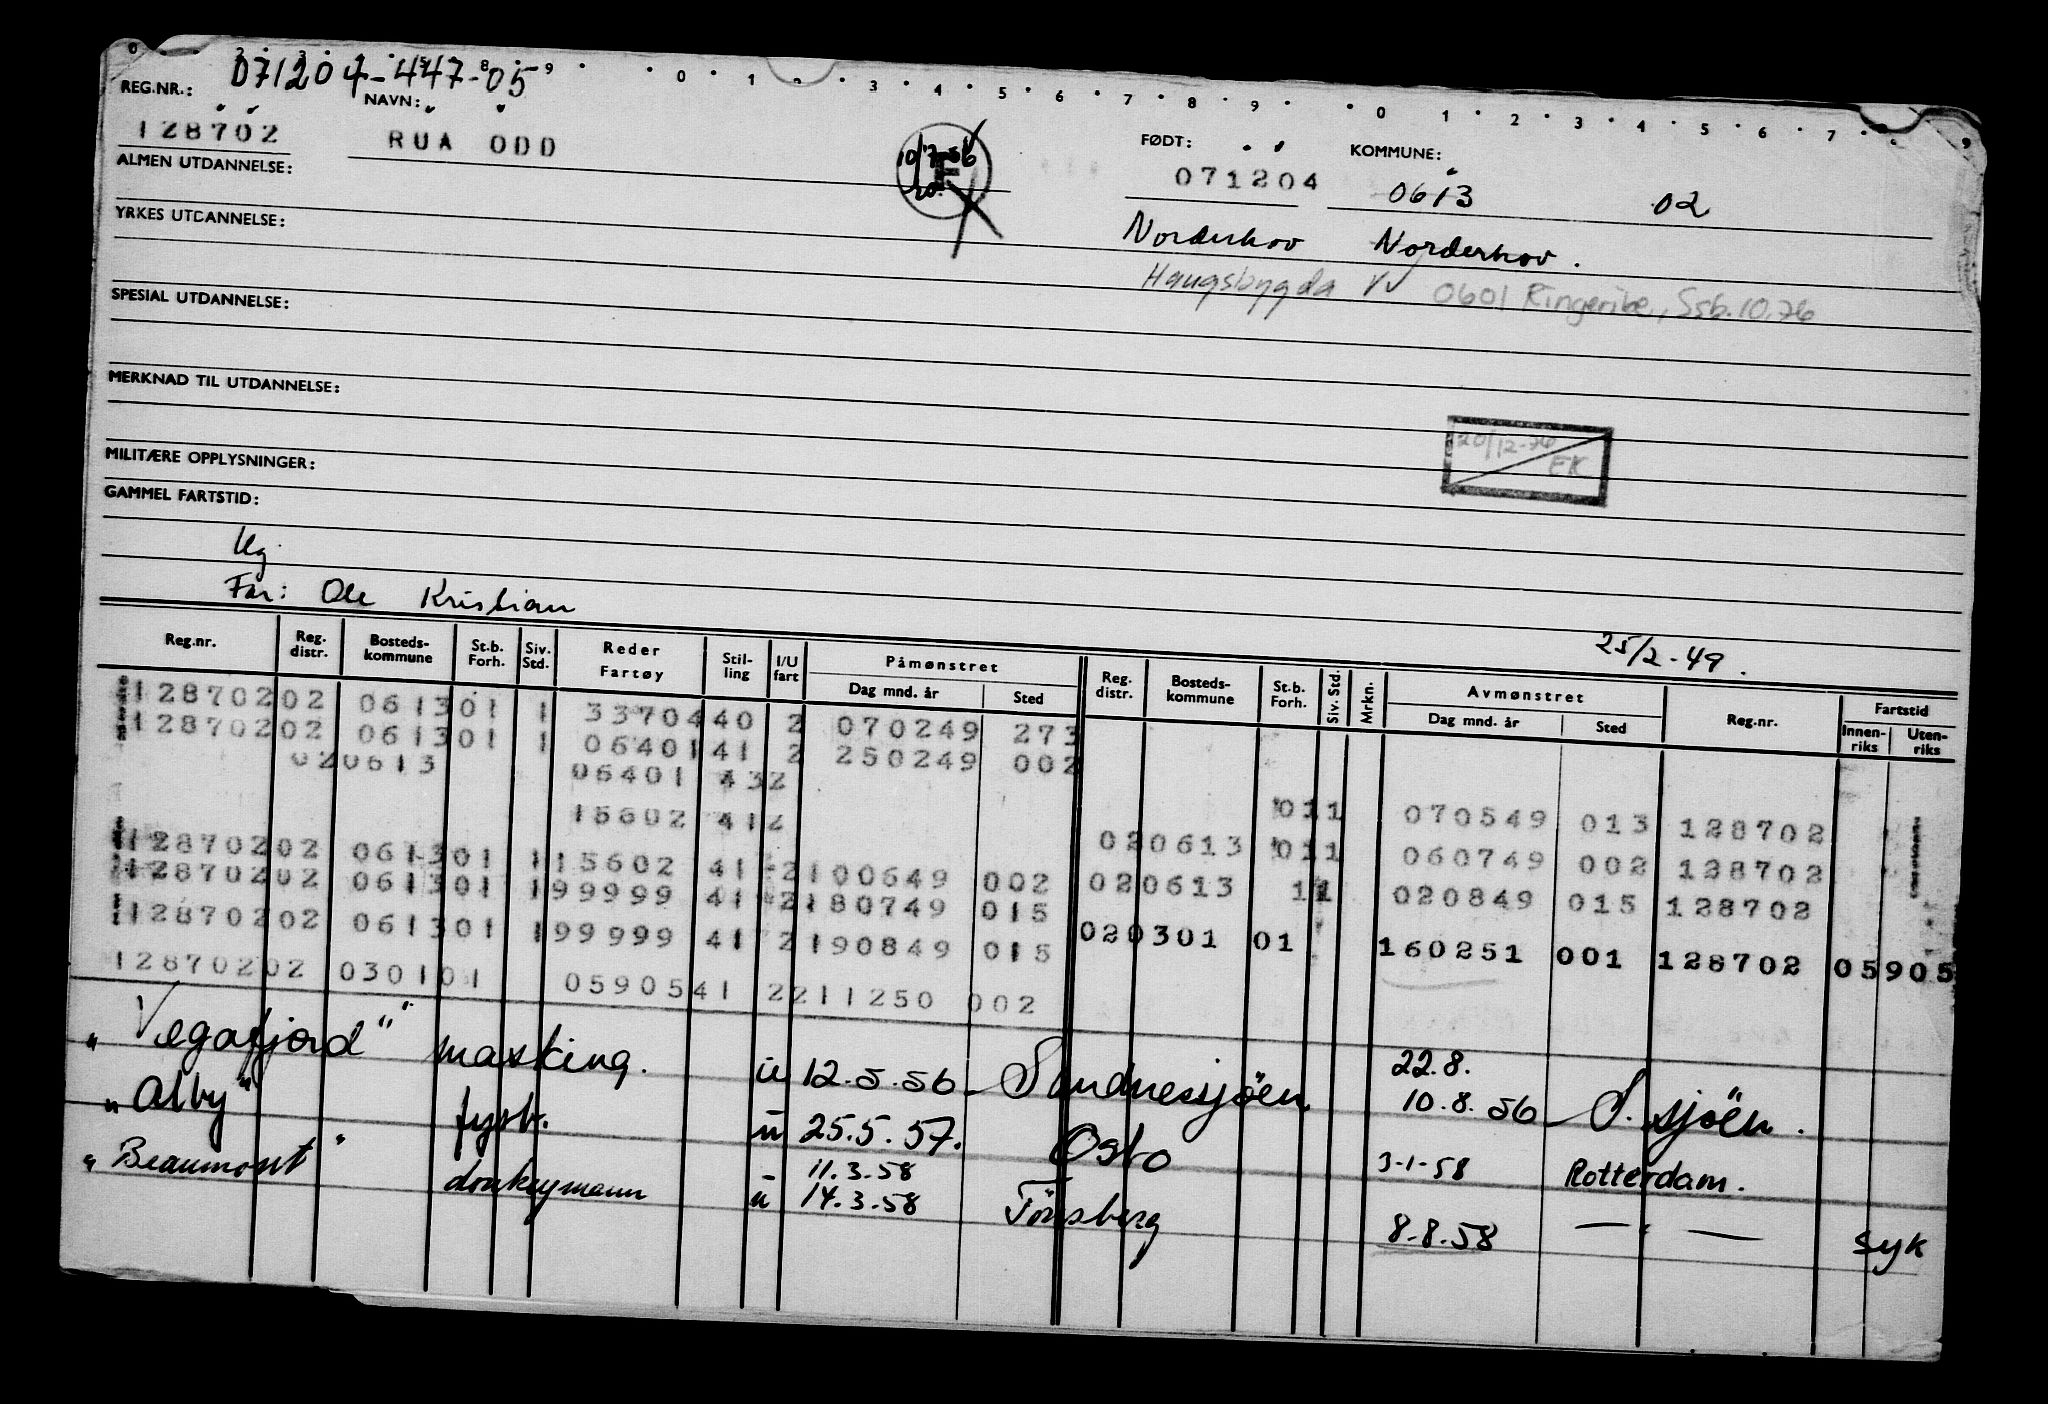 071204-447-05
REG.NR.: NAVN: FØDT: KOMMUNE:
128702 RUA ODD 10/7-56 071204 0613 02
ALMEN UTDANNELSE:
Norderhov Norderhov.
YRKES UTDANNELSE:
Haugsbygda 0601 Ringerike, Ssb. 10.76
SPESIAL UTDANNELSE:
MERKNAD TIL UTDANNELSE:
20/12-76
EK
MILITÆRE OPPLYSNINGER:
GAMMEL FARTSTID:
Ug.
Far: Ole Kristian
25/2-49.
Reg.nr. Reg. distr. Bosteds- kommune St.b. Forh. Siv. Std. Reder Fartøy Stil- ling I/U fart Påmønstret Dag mnd. år Sted Reg. distr. Bosteds- kommune St.b. Forh. Siv. Std. Mrkn. Avmønstret Dag mnd. år Sted Reg.nr. Fartstid Innen- riks Uten- riks
128702 02 0613 01 1 33704 40 2 070249 273
128702 02 0613 01 1 06401 41 2 250249 002
02 0613 06401 43 2
15602 41 2 01 1 070549 013 128702
128702 02 0613 01 1 15602 41 2 100649 002 02 0613 01 1 060749 002 128702
128702 02 0613 01 1 99999 41 2 180749 015 02 0613 1 1 020849 015 128702
128702 02 0613 01 1 99999 41 2 190849 015 02 0301 01 160251 001 128702 05905
128702 02 0301 01 05905 41 2 211250 002
"Vegafjord" masking. u 12.5.56 Sandnessjöen 22.8. 10.8.56 S.sjöen.
"Alby" fyrb. u 25.5.57. Oslo 3-1-58 Rotterdam.
"Beaumont" donkeymann u 11.3.58 14.3.58 Tönsberg 8.8.58 — " — syk